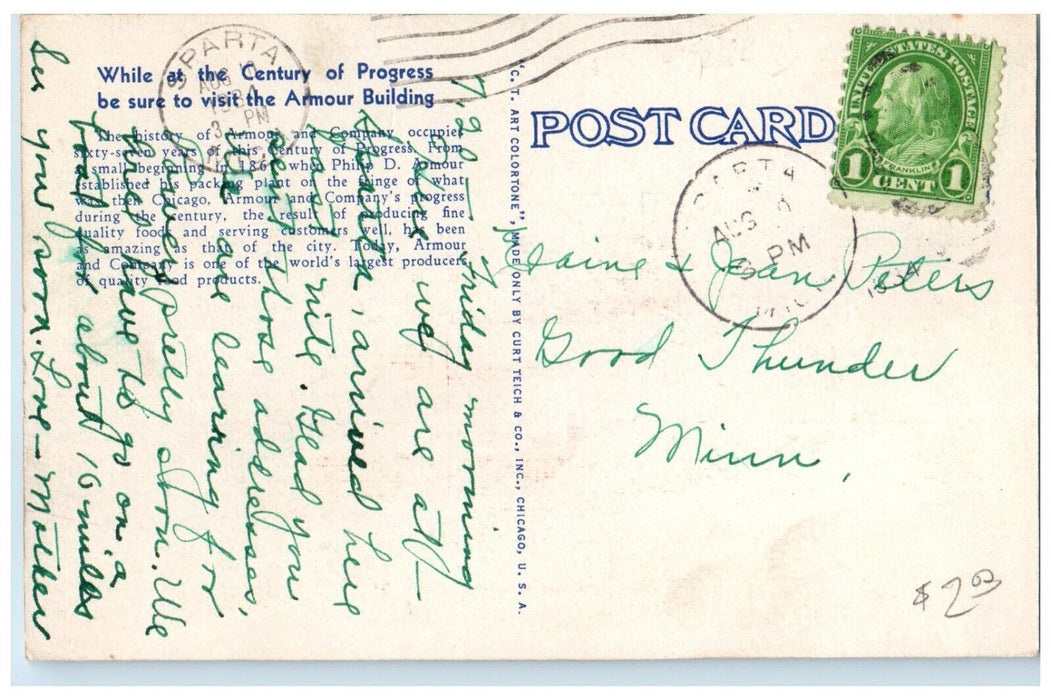 SPARTA
AUG
1934
3 PM
MICH.
While at the Century of Progress
be sure to visit the Armour Building
The history of Armour and Company occupies
sixty-seven years of this Century of Progress. From
a small beginning in 1867 when Philip D. Armour
established his packing plant on the fringe of what
was then Chicago, Armour and Company's progress
during the century, the result of producing fine
quality foods and serving customers well, has been
as amazing as that of the city. Today, Armour
and Company is one of the world's largest producers
of quality food products.
Friday morning
we are at
Sparta, arrived here
last nite. Glad you
sent those addresses.
We are leaving for
pretty soon. We
have to go on a
about 10 miles
your own. Love - Mother
"C. T. ART COLORTONE", MADE ONLY BY CURT TEICH & CO., INC., CHICAGO, U. S. A.
POST CARD
UNITED STATES POSTAGE
FRANKLIN
1 CENT 1
SPARTA
AUG
PM
MICH
& Jean Peters
Good Thunder
Minn.
$2.00